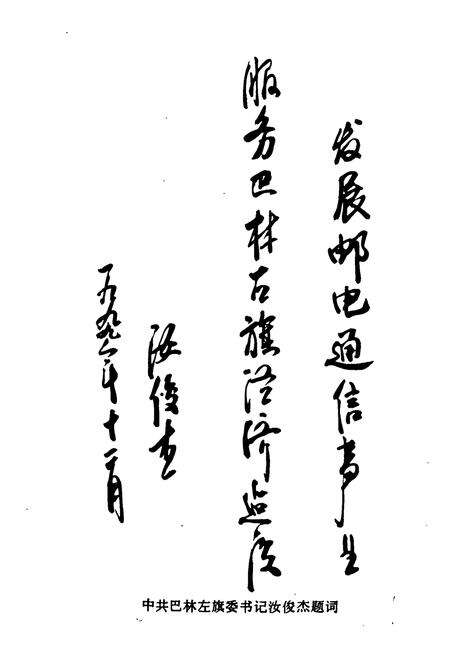 发展邮电通信事业
服务巴林左旗经济建设
汝俊杰
一九九一年十一月
中共巴林左旗委书记汝俊杰题词